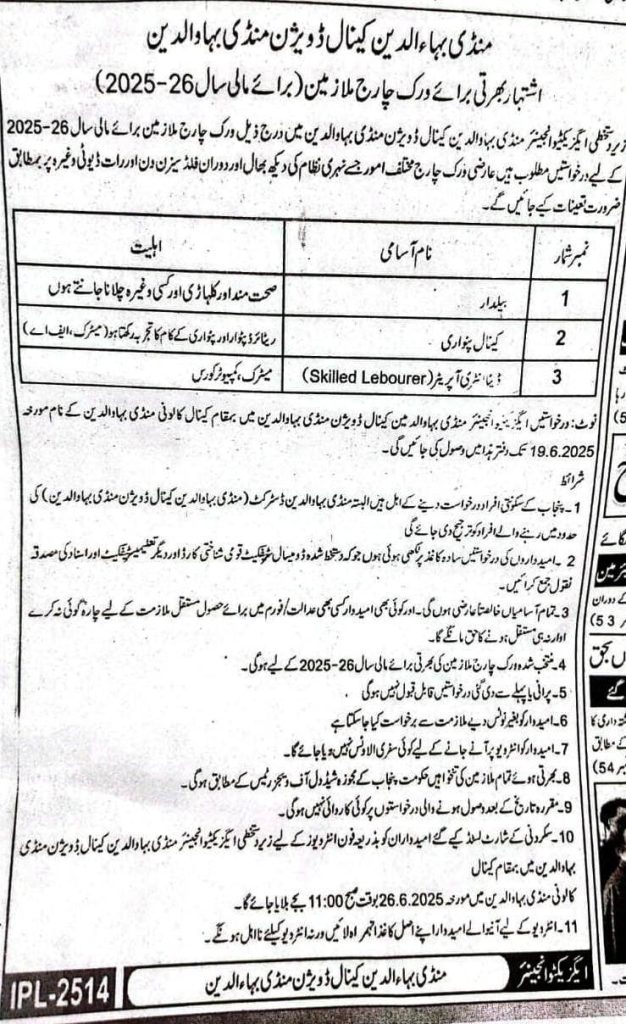 منڈی بہاءالدین کینال ڈویژن منڈی بہاوالدین
اشتہار بھرتی برائے ورک چارج ملازمین (برائے مالی سال 26-2025)
زیر دستخطی ایگزیکٹیو انجینئر منڈی بہاوالدین کینال ڈویژن منڈی بہاوالدین میں درج ذیل ورک چارج ملازمین برائے مالی سال 26-2025
کے لیے درخواستیں مطلوب ہیں عارضی ورک چارج مختلف امور جسے نہری نظام کی دیکھ بھال اور دوران فلڈ سیزن دن اور رات ڈیوٹی وغیرہ پر بمطابق
ضرورت تعینات کیے جائیں گے۔
نمبر شمار نام آسامی اہلیت
1 بیلدار صحت مند اور کلہاڑی اور کسی وغیرہ چلانا جانتے ہوں
2 کینال پٹواری ریٹائرڈ پٹوار اور پٹواری کے کام کا تجربہ رکھتا ہو (میٹرک، ایف اے)
3 ڈیٹا انٹری آپریٹر (Skilled Lebourer) میٹرک، کمپیوٹر کورس
نوٹ: درخواستیں ایگزیکٹیو انجینئر منڈی بہاوالدین کینال ڈویژن منڈی بہاوالدین میں بمقام کینال کالونی منڈی بہاوالدین کے نام مورخہ
19.6.2025 تک دفتر ہذا میں وصول کی جائیں گی۔
شرائط
1۔ پنجاب کے سکونتی افراد درخواست دینے کے اہل ہیں البتہ منڈی بہاوالدین ڈسٹرکٹ (منڈی بہاوالدین کینال ڈویژن منڈی بہاوالدین) کی
حدود میں رہنے والے افراد کو ترجیح دی جائے گی
2۔ امیدواروں کی درخواستیں سادہ کاغذ پر لکھی ہوئی ہوں جو کہ دستخط شدہ ڈومیسائل سرٹیفکیٹ قومی شناختی کارڈ اور دیگر تعلیمی سرٹیفکیٹ اور اسناد کی مصدقہ
نقول جمع کرائیں۔
3۔ تمام آسامیاں خالصتاً عارضی ہوں گی۔ اور کوئی بھی امیدوار کسی بھی عدالت/فورم میں برائے حصول مستقل ملازمت کے لیے چارہ گوئی نہ کرے
اور نہ ہی مستقل ہونے کا حق مانگے گا۔
4۔ منتخب شدہ ورک چارج ملازمین کی بھرتی برائے مالی سال 26-2025 کے لیے ہوگی۔
5۔ پرانی یا پہلے سے دی گئی درخواستیں قابل قبول نہیں ہوگی
6۔ امیدوار کو بغیر نوٹس دیے ملازمت سے برخواست کیا جا سکتا ہے
7۔ امیدوار کو انٹرویو پر آنے جانے کے لیے کوئی سفری الاونس نہیں دیا جائے گا۔
8۔ بھرتی ہوئے تمام ملازمین کی تنخواہیں حکومت پنجاب کے مجوزہ شیڈول آف ویجز ریٹس کے مطابق ہوگی۔
9۔ مقررہ تاریخ کے بعد وصول ہونے والی درخواستوں پر کوئی کاروائی نہیں ہوگی۔
10۔ سکروٹنی کے شارٹ لسٹڈ کیے گئے امیدواران کو بذریعہ فون انٹرویوز کے لیے زیر دستخطی ایگزیکٹیو انجینئر منڈی بہاوالدین کینال ڈویژن منڈی
بہاوالدین میں بمقام کینال
کالونی منڈی بہاوالدین میں مورخہ 26.6.2025 بوقت صبح 11:00 بجے بلایا جائے گا۔
11۔ انٹرویو کے لیے آنیوالے امیدوار اپنے اصل کاغذات ہمراہ لائیں ورنہ انٹرویو کیلئے نا اہل ہونگے۔
ایگزیکٹو انجینئر منڈی بہاءالدین کینال ڈویژن منڈی بہاءالدین
IPL-2514